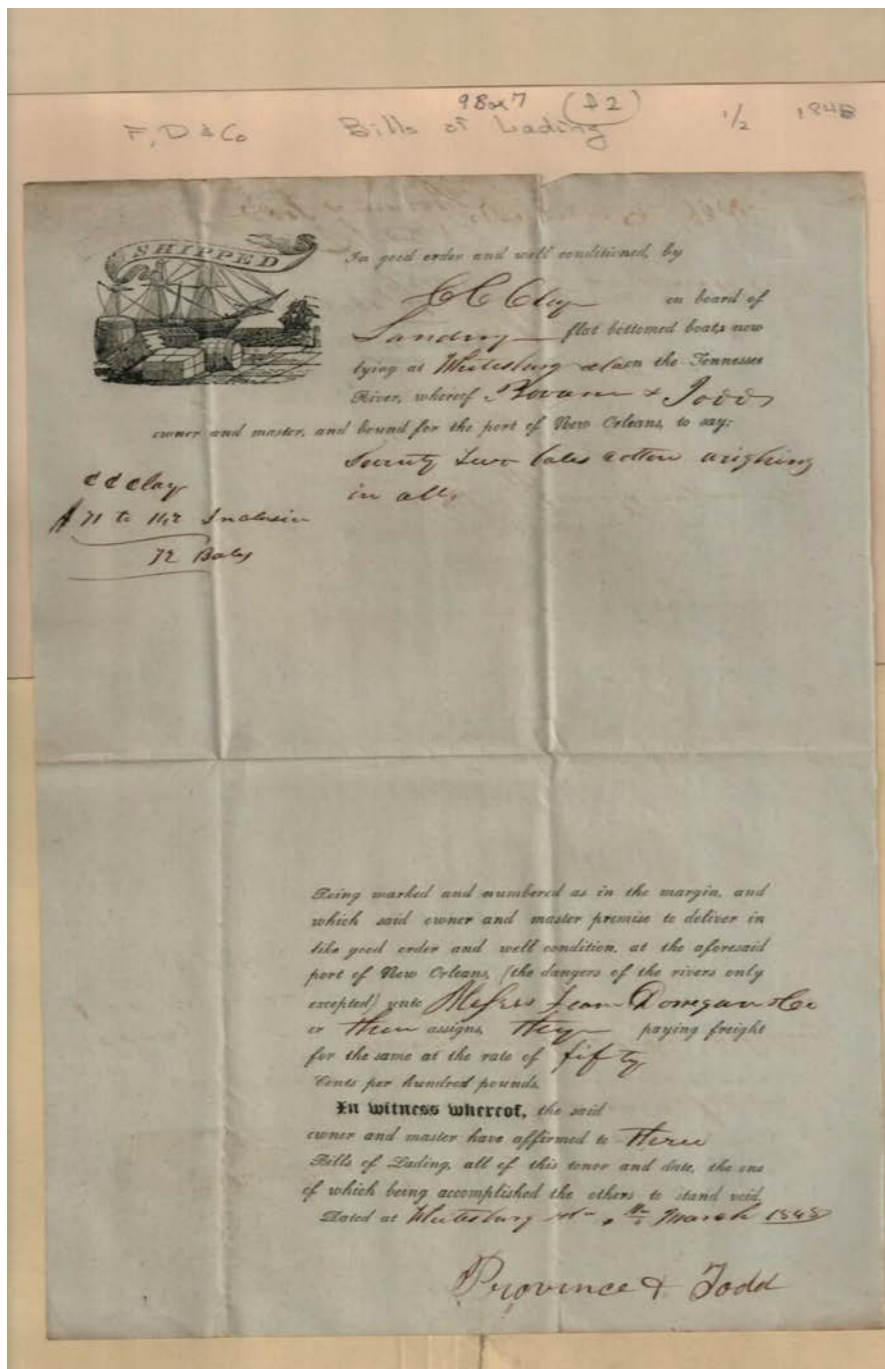 98ox7 (f2)
F, D & Co Bills of Lading 1/2 1848
SHIPPED
In good order and well conditioned, by
C C Clay on board of
Sundry flat bottomed boats now
lying at Whitesburg Ala on the Tennessee
River, whereof & Todd
owner and master, and bound for the port of New Orleans, to say:
Seventy two bales cotton weighing
in all,
C C Clay
71 to 142 Inclusive
72 Bales
Being marked and numbered as in the margin, and
which said owner and master promise to deliver in
like good order and well condition, at the aforesaid
port of New Orleans, (the dangers of the rivers only
excepted) unto Messrs Fearn Donegan & Co
or their assigns, they paying freight
for the same at the rate of fifty
Cents per hundred pounds.
In witness whereof, the said
owner and master have affirmed to three
Bills of Lading, all of this tenor and date, the one
of which being accomplished the others to stand void.
Dated at Whitesburg Ala March 1848
Province & Todd